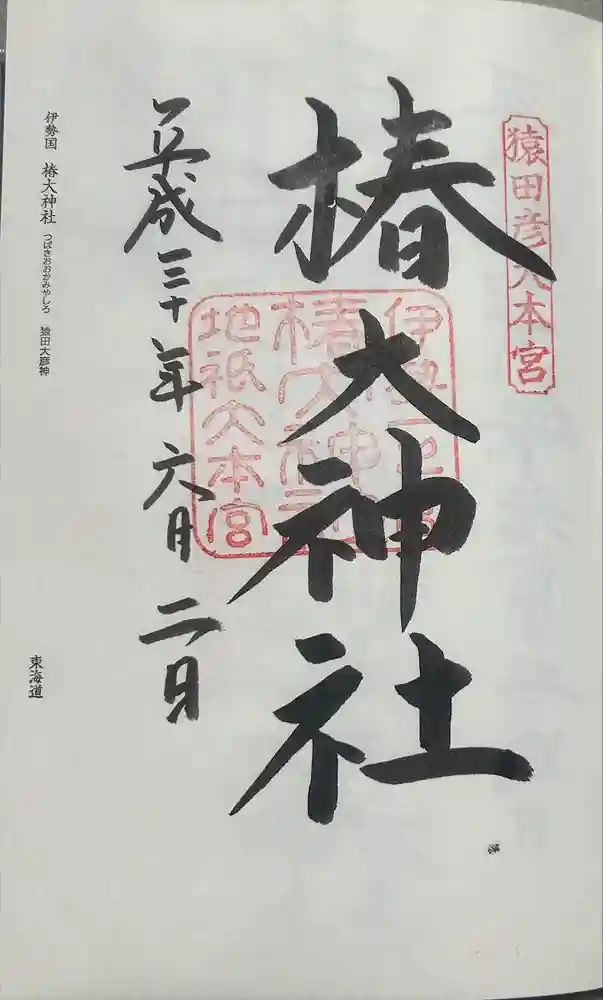 猿田彦大本宮
椿大神社
伊勢一之宮
椿大神社
地祇大本宮
平成三十年 六月 二日
伊勢国 椿大神社 つばきおおかみやしろ 猿田大彦神
東海道